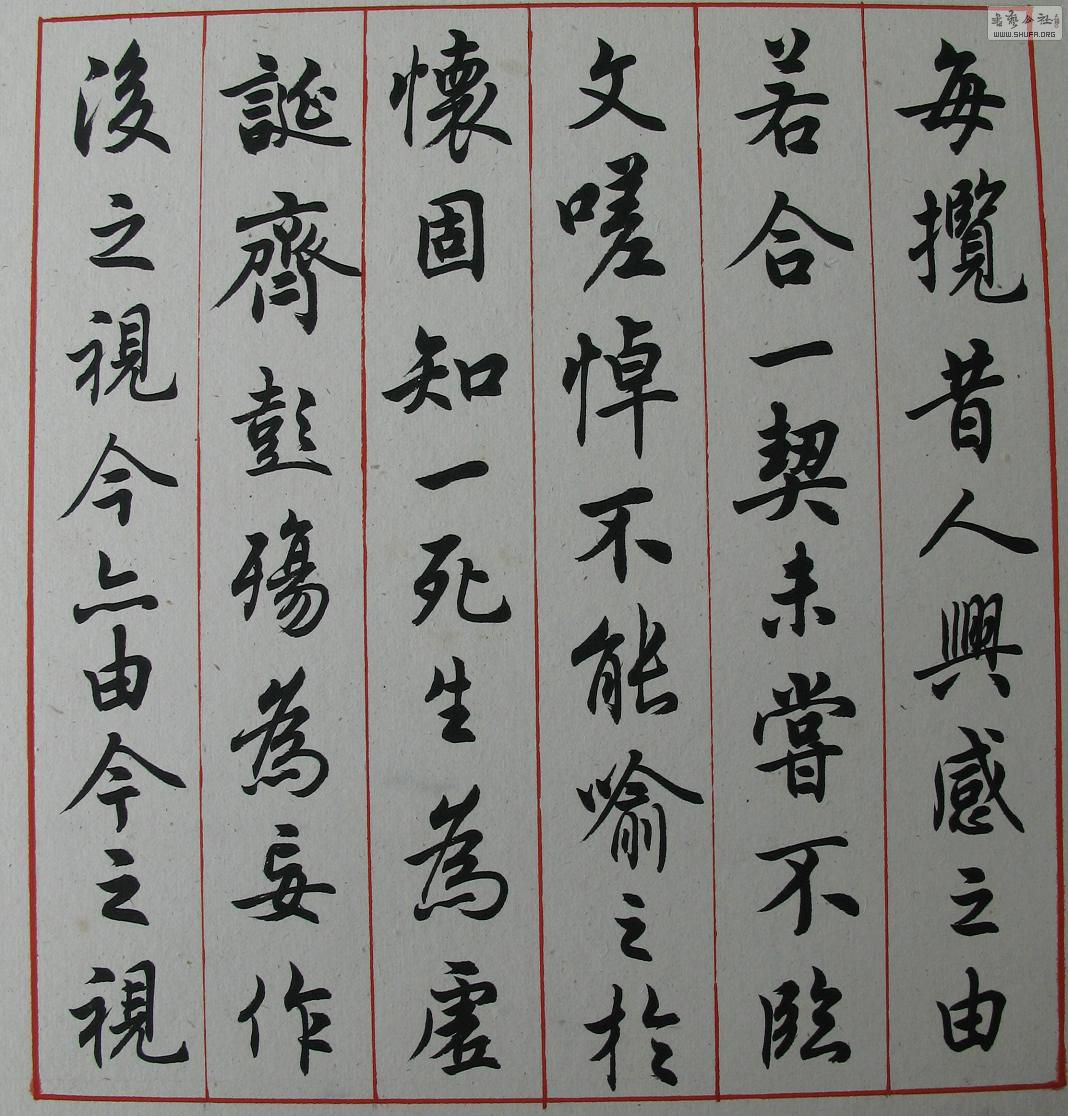 每攬昔人興感之由
若合一契未嘗不臨
文嗟悼不能喻之於
懷固知一死生為虛
誕齊彭殤為妄作
後之視今亦由今之視
書藝公社
WWW.SHUFA.ORG